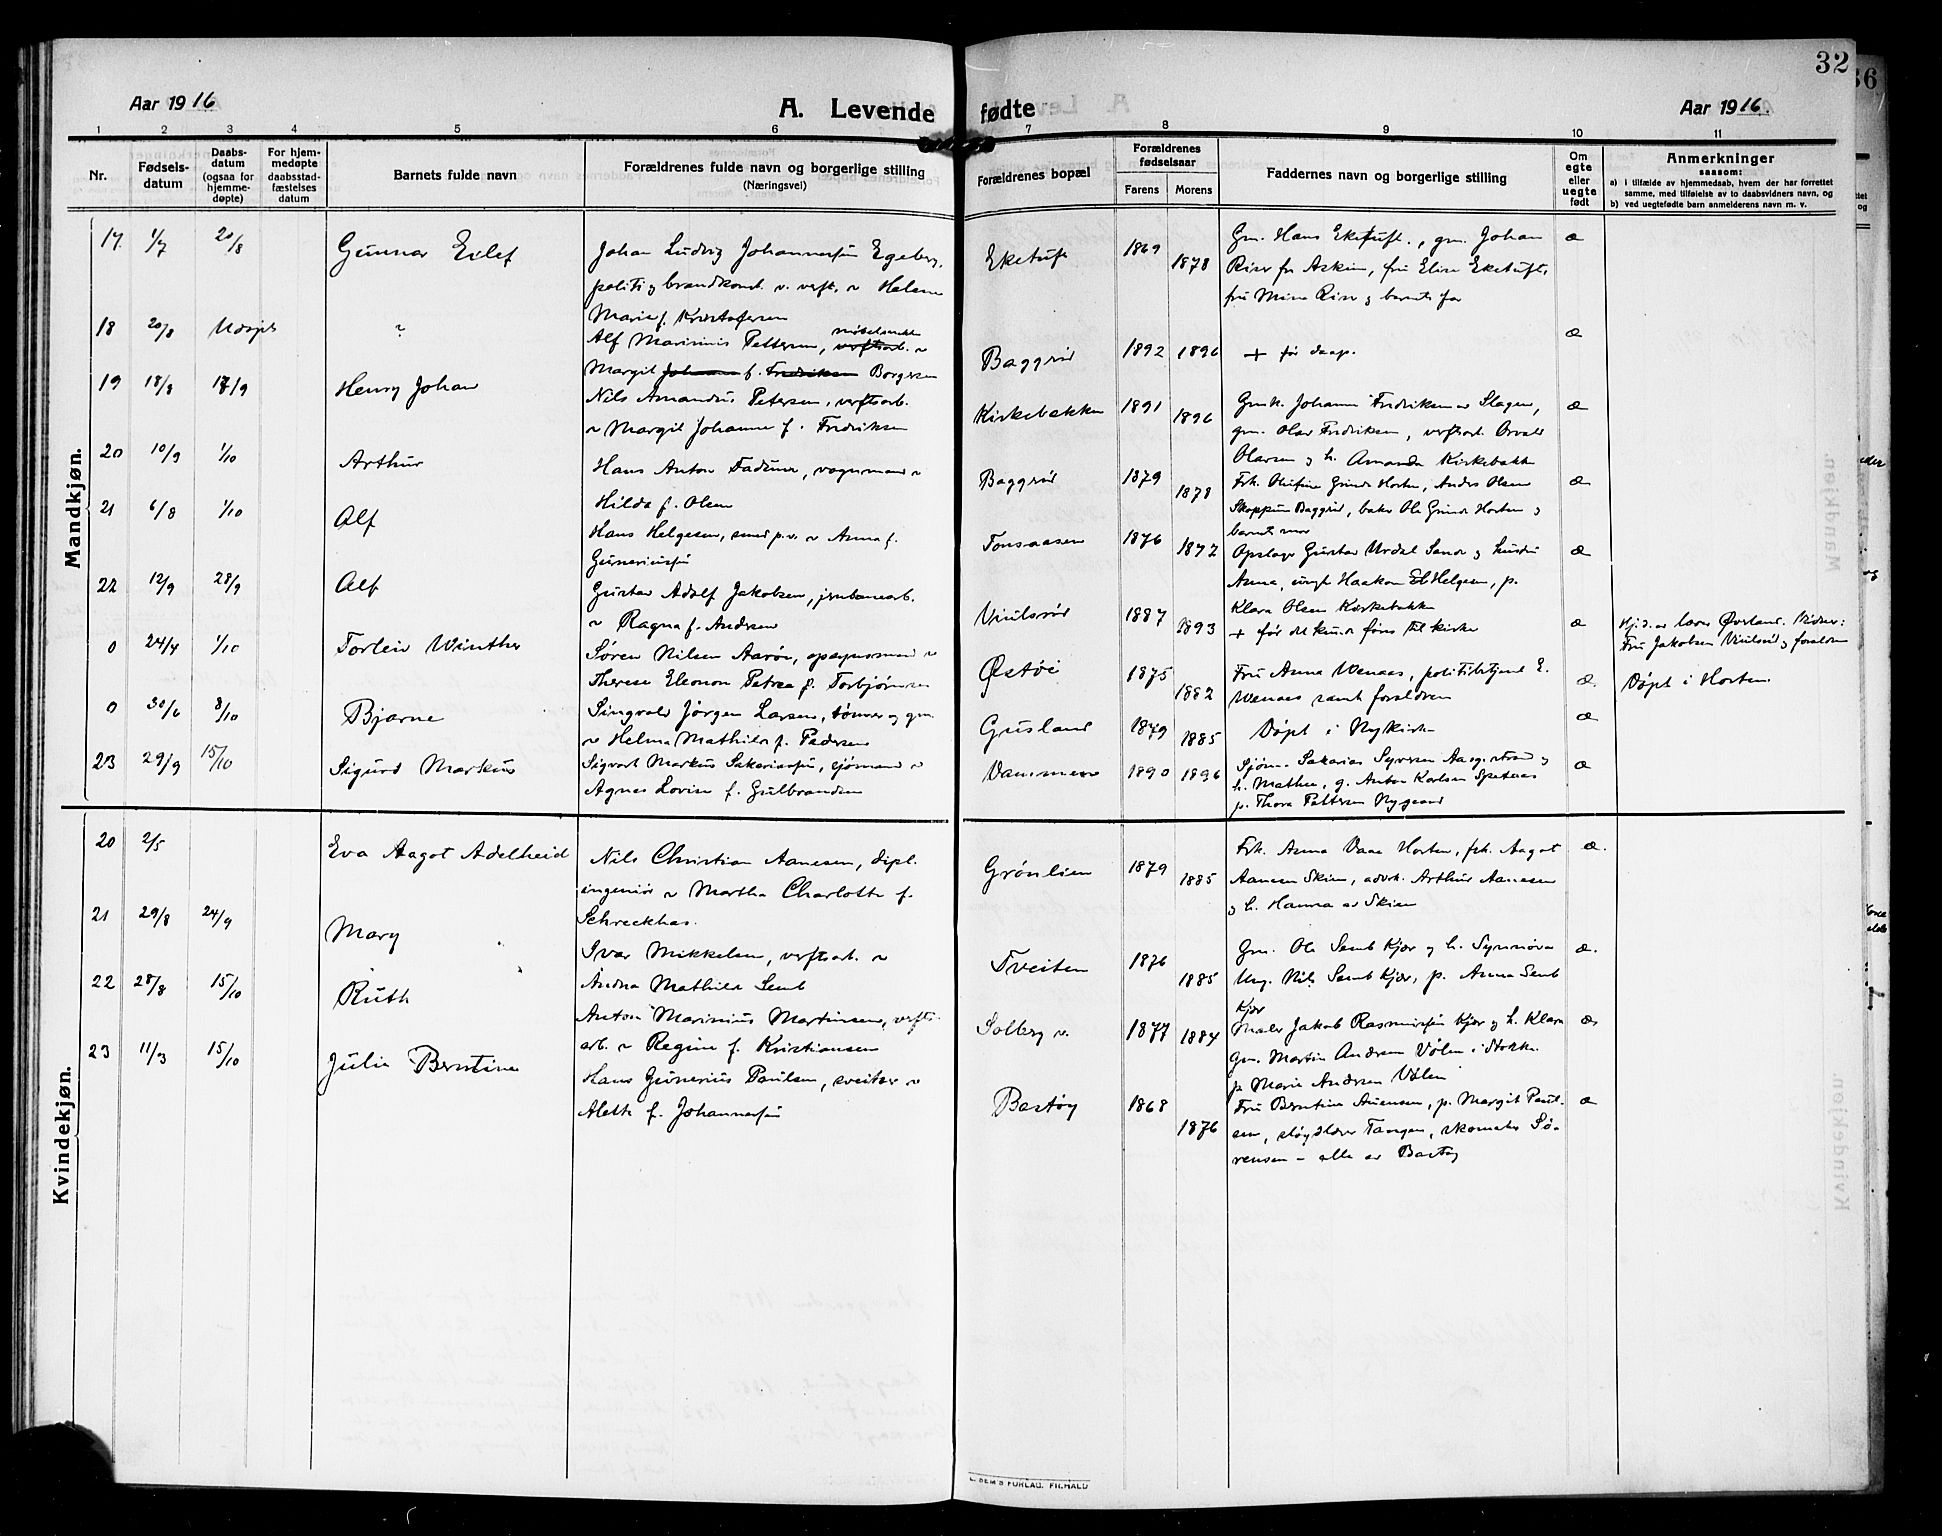 32
Aar 1916
A. Levende
fødte
Aar 1916.
1 2 3 4 5 6 7 8 9 10 11
Nr.
Fødsels-
datum
Daabs-
datum
(ogsaa for
hjemme-
døpte)
For hjem-
medøpte
daabsstad-
fæstelses
datum
Barnets fulde navn
Forældrenes fulde navn og borgerlige stilling
(Næringsvei)
Forældrenes bopæl
Forældrenes
fødselsaar
Farens Morens
Faddernes navn og borgerlige stilling
Om
egte
eller
uegte
født
Anmerkninger
saasom:
a) i tilfælde av hjemmedaab, hvem der har forrettet
samme, med tilføielse av to daabsvidners navn, og
b) ved uegtefødt barn anmelderens navn m. v.
Mandkjøn.
17. 1/7 20/8
Gunnar Eilef
Johan Ludvig Johannessen Egeberg,
politi og brandkonst. v. verft. &
Marie f. Kristofersen
1869 1878
Gm. Hans Eketuft, gm. Johan
fra Askim, fru Elise Eketuft,
fru Mina og barnets far
æ
18 20/8 Udøpt
"
Alf Marinius Pettersen, verftsarb. &
Margit Johanne f. Fredriksen Borgersen
Baggrød 1892 1896
+ før daap.
æ
19 18/8 17/9
Henry Johan
Nils Amandus Petersen, verftsarb.
& Margit Johanne f. Fredriksen
Kirkebakken 1891 1896
Gmk. Johanne Fredriksen av Slagen,
gm. Olav Fredriksen, verftsarb.
Olavsen og h. Amanda Kirkebakken
æ
20 10/9 1/10
Arthur
Hans Anton Fadum, vognmand &
Hilda f. Olsen
Baggrød 1879 1878
Frk. Olufine Horten, Anders Olsen
Skoppum Baggrød, baker Ole Horten og
barnets mor
æ
21 6/8 1/10
Alf
Hans Helgesen, smed p.v. & Anna f.
Gunneriussen
Tonsaasen 1876 1872
Gustav Urdal Sande og
Anna, ungk. Haakon Helgesen, p.
Klara Olsen Kirkebakken
æ
22 12/9 28/9
Alf
Gustav Adolf Jakobsen, jernbanearb.
& Ragna f. Andersen
Viulsrød 1887 1893
+ før det kunde føres til kirke
æ
Hj.d. av lærer Øverland. Vidner:
Fru Jakobsen Viulsrød og forældrene
0 24/4 1/10
Torleiv Winther
Søren Nilsen Aarøe, opsynsmand &
Therese Eleonore Petrea f. Torbjørnsen
Østøi 1875 1882
Fru Anna Wenaas, politibetjent E.
Wenaas samt forældrene
æ.
Døpt i Horten
0 30/6 8/10
Bjarne
Singvald Jørgen Larsen, tømrer og gm.
& Helma Mathilde f. Pedersen
Gusland 1879 1885
Døpt i Nykirke
æ
23 29/9 15/10
Sigurd Markus
Sigvart Markus Sakariassen, sjømand &
Agnes Lovise f. Gulbrandsen
1890 1896
Sjøm. Sakarias Syversen Aasgrstrand og
h. Mathea, g. Anton Karlsen
p. Thora Pettersen Nygaard
æ
Kvindekjøn.
20 2/5
Eva Aagot Adelheid
Nils Christian Aanesen, dipl.
ingeniør & Martha Charlotte f.
Schreckhas.
Grønlien 1879 1885
Frk. Anna Vaae Horten, frk. Aagot
Aanesen Skien, advk. Arthur Aanesen
og h. Hanna av Skien
æ.
21 29/8 24/9
Mary
Ivar Mikkelsen, verftsarb. &
Andrea Mathilde Semb
Tveiten 1876 1885
Gm. Ole Semb Kjær og h. Synnøva
Ung. Nils Semb Kjær, p. Anna Semb
Kjær
æ.
22 28/8 15/10
Ruth
Anton Marinius Martinsen, verfts-
arb. & Regine f. Kristiansen
Solberg v. 1877 1884
Maler Jakob Rasmussen Kjær og h. Klara
Gm. Martin Andersen Vølen i Stokke
p. Marie Andersen Vølen
æ
23 11/3 15/10
Julie Berntine
Hans Gunerius Paulsen, sveitser &
Alette f. Johannessen
Bastøy 1868 1876
Fru Berntine p. Margit Paul-
sen, sløydlærer Tangen, skomaker Sø-
rensen - alle av Bastøy
æ
E. SEM'S FORLAG, FR.HALD